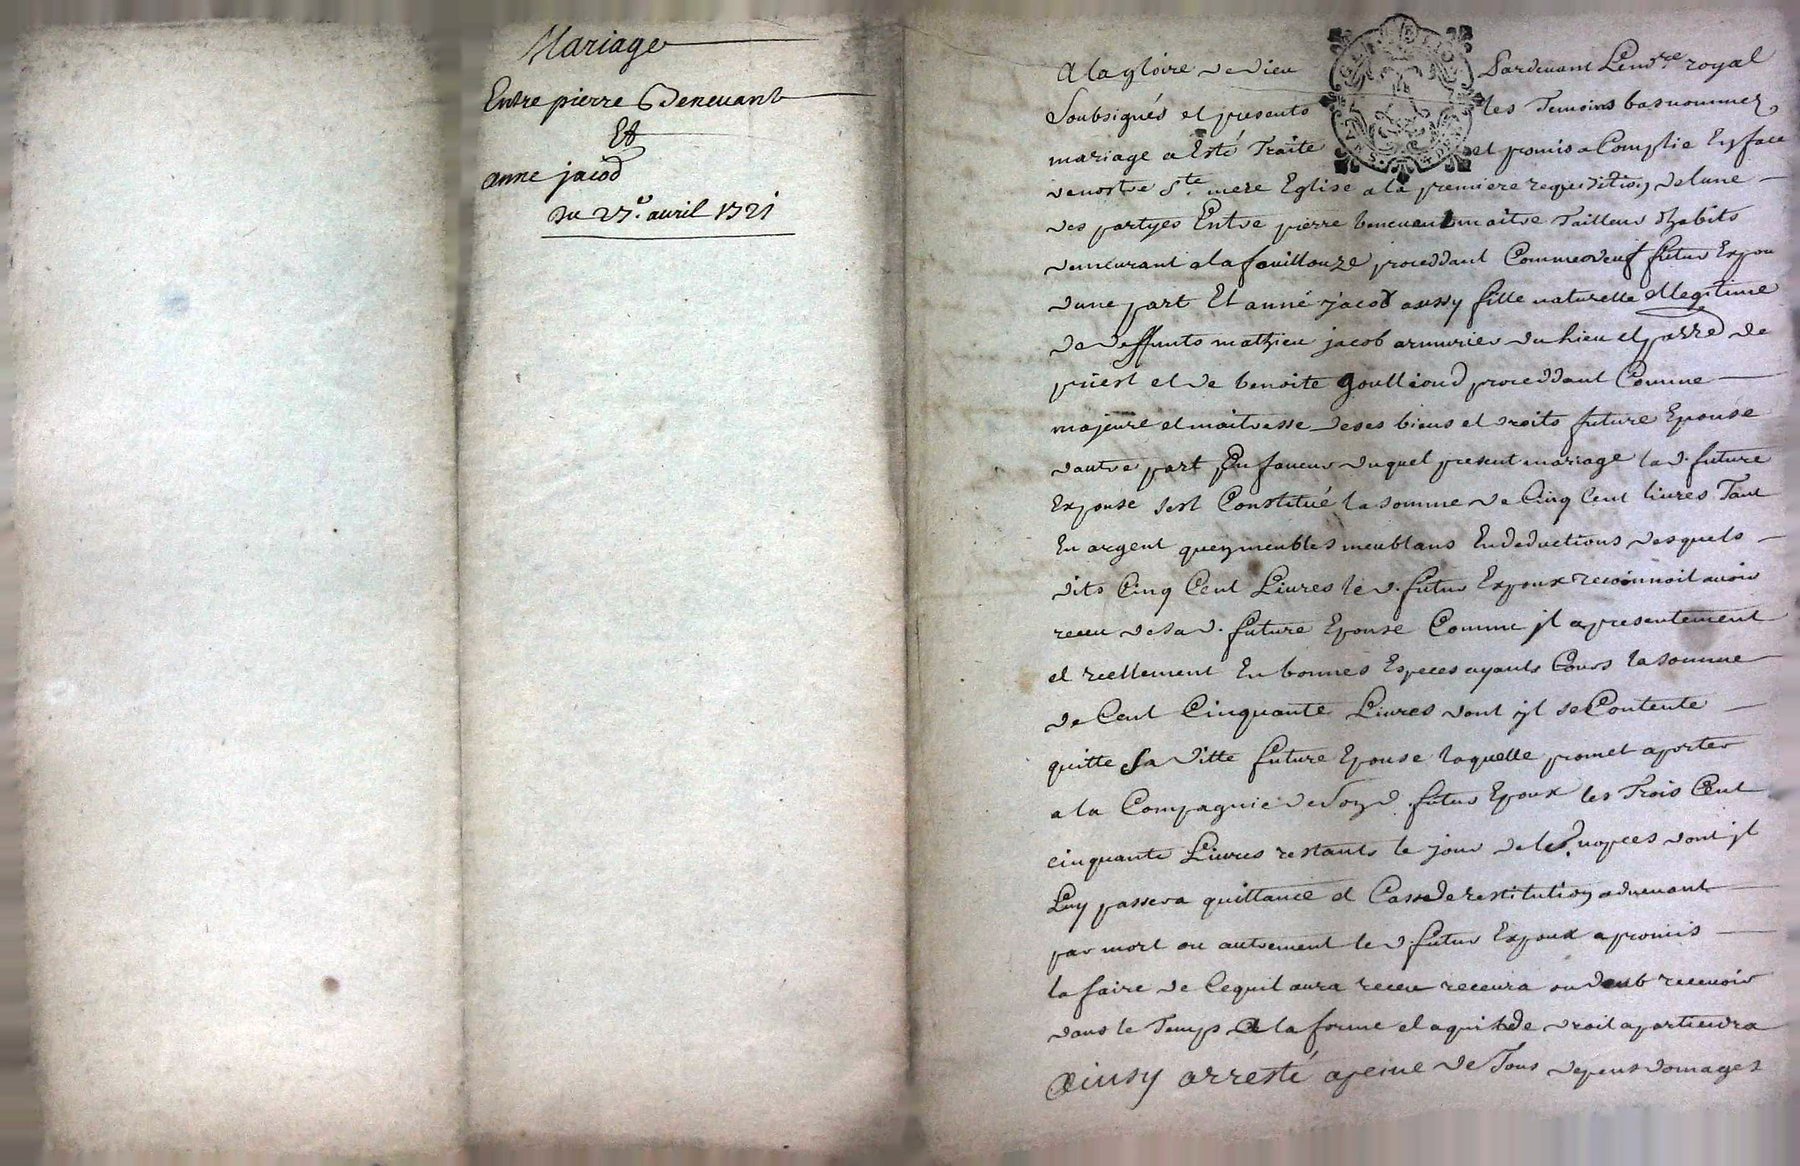 Mariage
Entre pierre Benevant
Et
anne jacod
Du 27.e avril 1721
A la gloire de Dieu Pardevant Le no.re royal
Soubsignés et presents les Temoins bas nommez
mariage a Esté Traité et promis a Complir En face
de nostre S.te mere Eglise a la premiere requisition de lune
des partyes Entre pierre benevent maitre Tailleur dhabits
demeurant a la fouillouze proceddant Comme veuf futur Expou
dune part Et anne jacod aussy fille naturelle et Legitime
de deffunts mathieu jacob armurier du lieu et parre de
priest et de benoite goullioud proceddant Comme
majeure et maitresse de ses biens et droits future Epouse
dautre part En faveur duquel present mariage lad. future
Expouse sest Constitué la somme de Cinq Cent livres Tant
En argent quen meubles meublans En deductions desquels
dits Cinq Cent Livres le d. futur Expoux reconnoit avoir
receu de sa d. future Epouse Comme jl a presentement
et reellement En bonnes Especes ayants Cours la somme
de Cent Cinquante Livres dont jl se Contente
quitte sa ditte future Epouse laquelle promet aporter
a la Compagnie de son d. futur Epoux les Trois Cent
cinquante Livres restants le jour de les nopces dont jl
Luy passera quittance et Cas de restitution advenant
par mort ou autrement le d. futur Expoux a promis
la faire de Ce quil aura receu recevra ou deub recevoir
dans le Temps a la forme et a qui de droit apartiendra
Ainsy arresté a peine de Tous depens domages